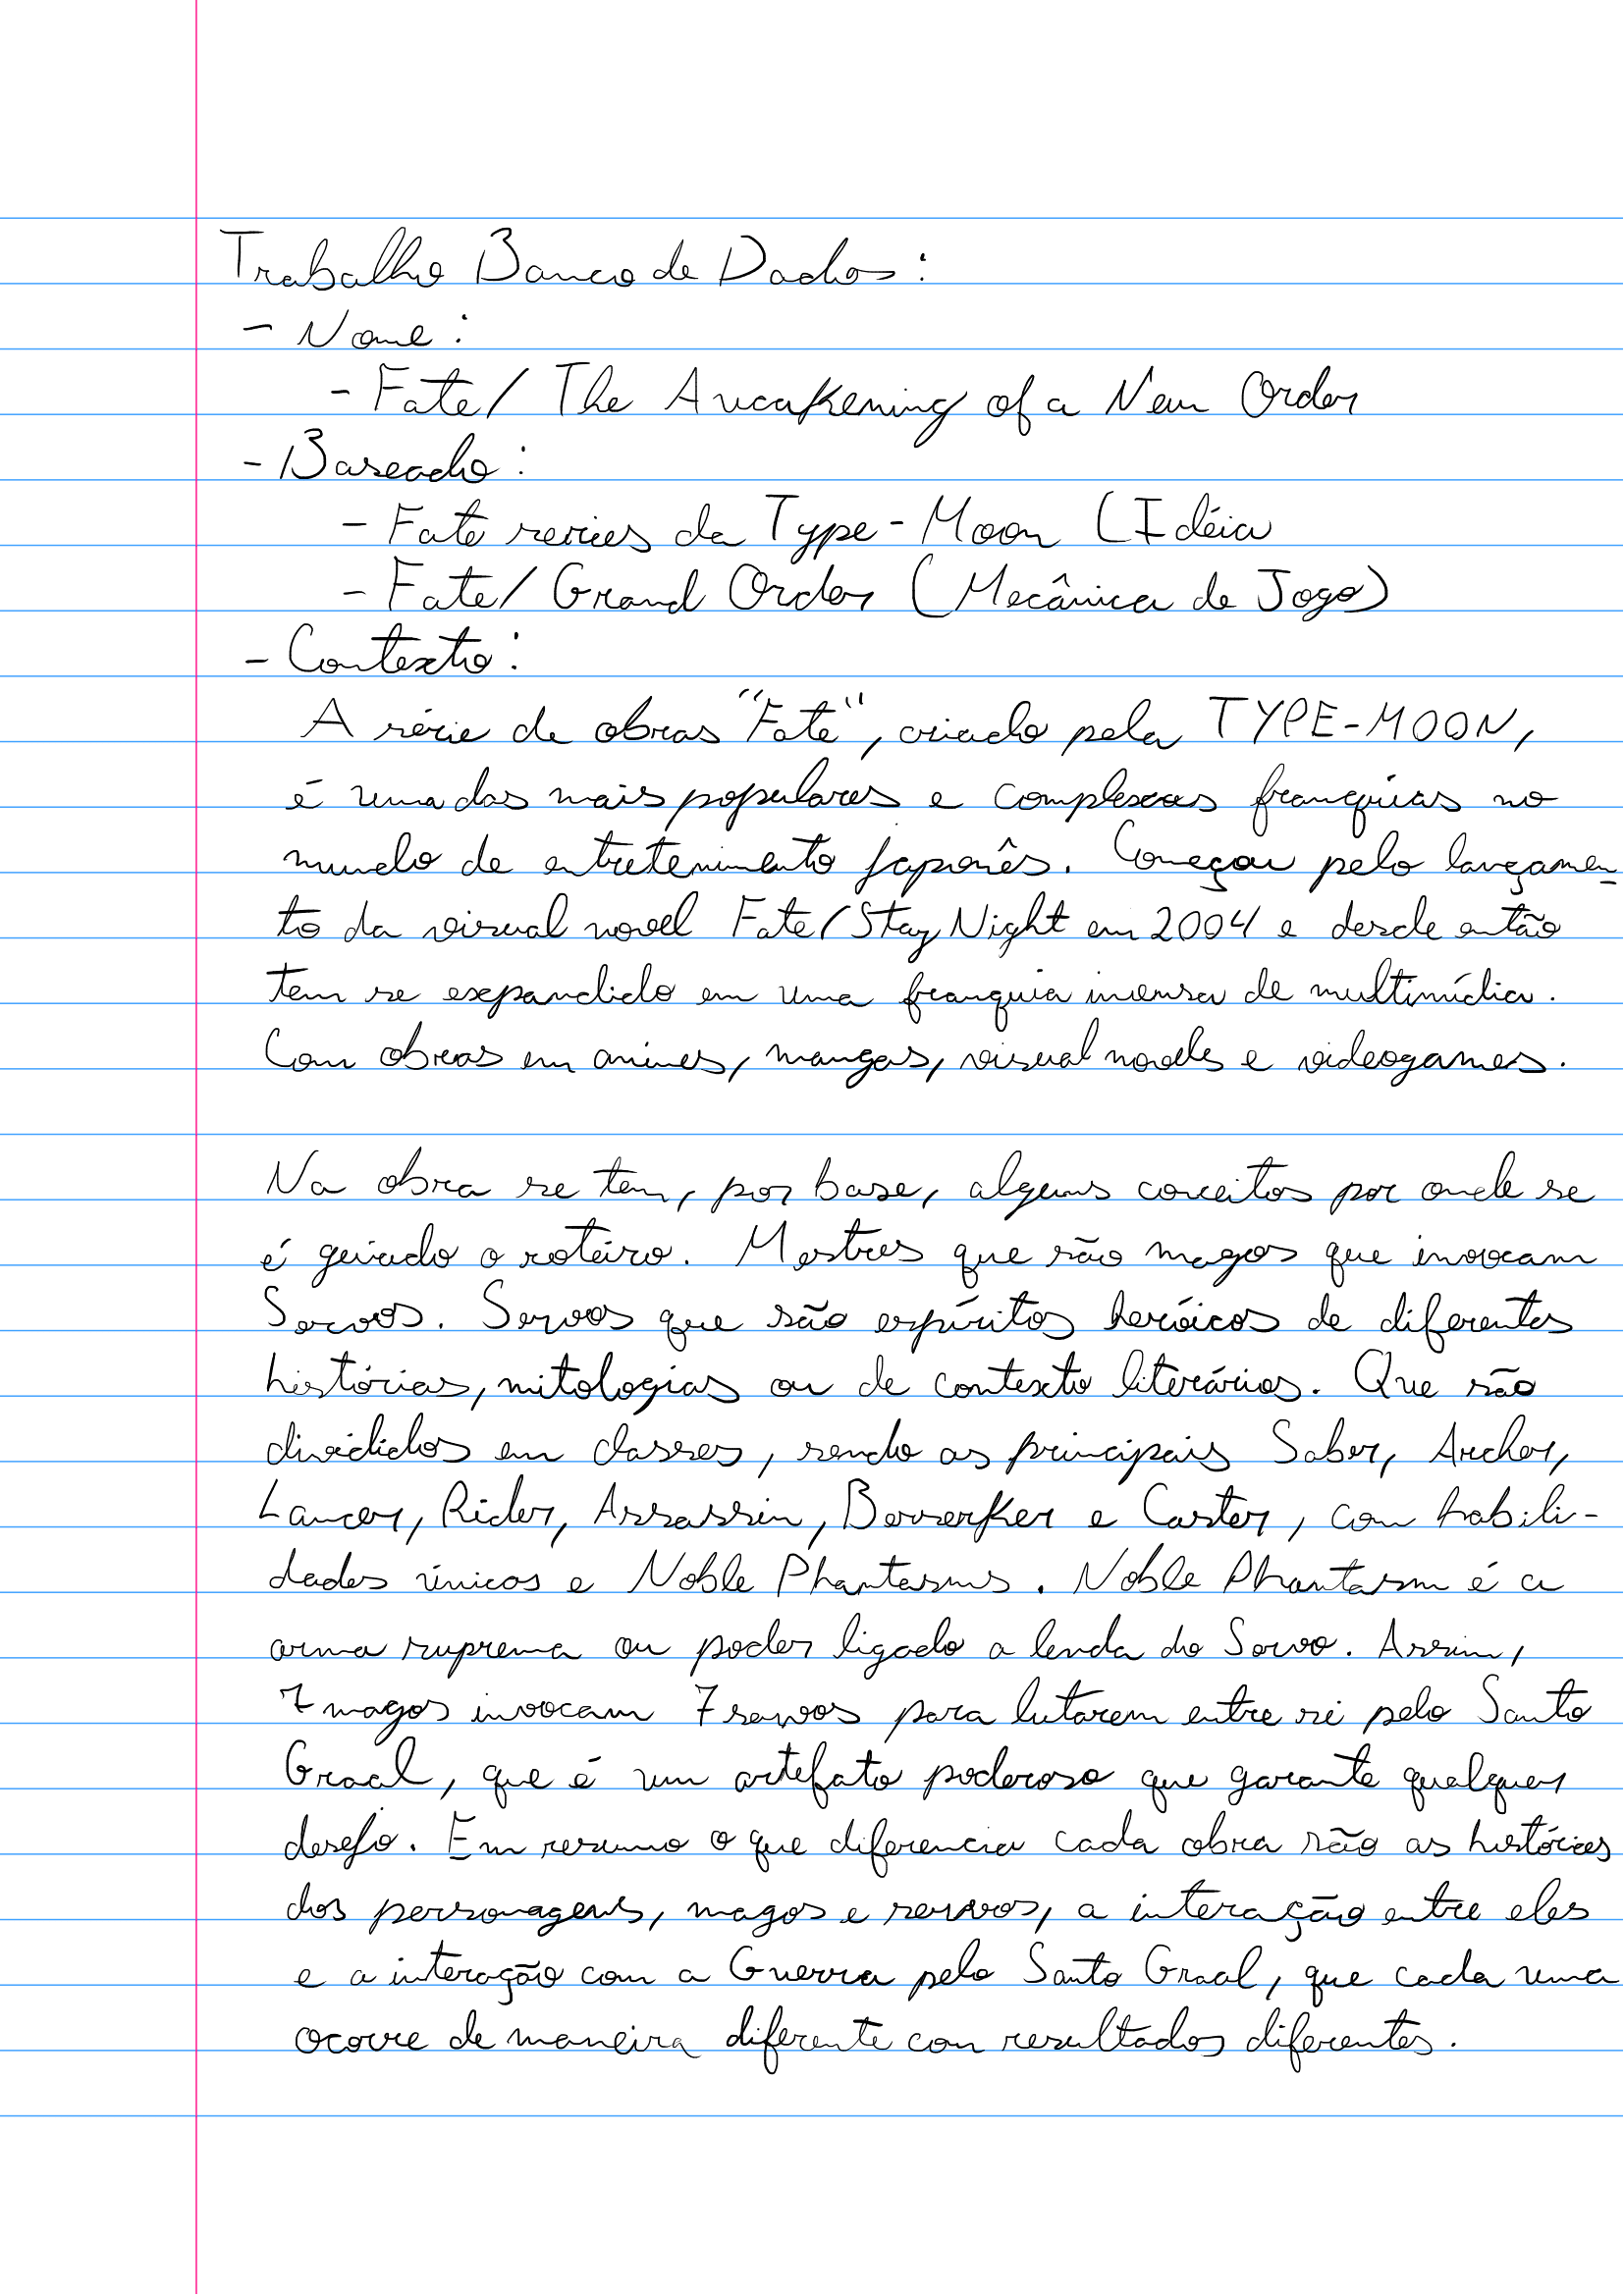 Trabalho Banco de Dados:
- Nome:
- Fate/ The Awcakening of a New Order
- Baseado:
- Fate series da Type-Moon (Idéia
- Fate/ Grand Order (Mecânica de Jogo)
- Contexto:
A série de obras "Fate", criado pela TYPE-MOON,
é uma das mais populares e complexas franquias no
mundo de entretenimento japonês. Começou pelo lançamen-
to da visual novel Fate/Stay Night em 2004 e desde então
tem se expandido em uma franquia imensa de multimídia.
Com obras em animes, mangas, visual novels e videogames.
Na obra se tem, por base, alguns conceitos por onde se
é guiado o roteiro. Mestres que são magos que invocam
Servos. Servos que são espíritos heróicos de diferentes
histórias, mitologias ou de contexto literários. Que são
divididos em classes, sendo as principais Saber, Archer,
Lancer, Rider, Assassin, Berserker e Caster, com habili-
dades únicas e Noble Phantasms. Noble Phantasm é a
arma suprema ou poder ligado a lenda do Servo. Assim,
7 magos invocam 7 servos para lutarem entre si pelo Santo
Graal, que é um artefato poderoso que garante qualquer
desejo. Em resumo o que diferencia cada obra são as histórias
dos personagens, magos e servos, a interação entre eles
e a interação com a Guerra pelo Santo Graal, que cada uma
ocorre de maneira diferente com resultados diferentes.